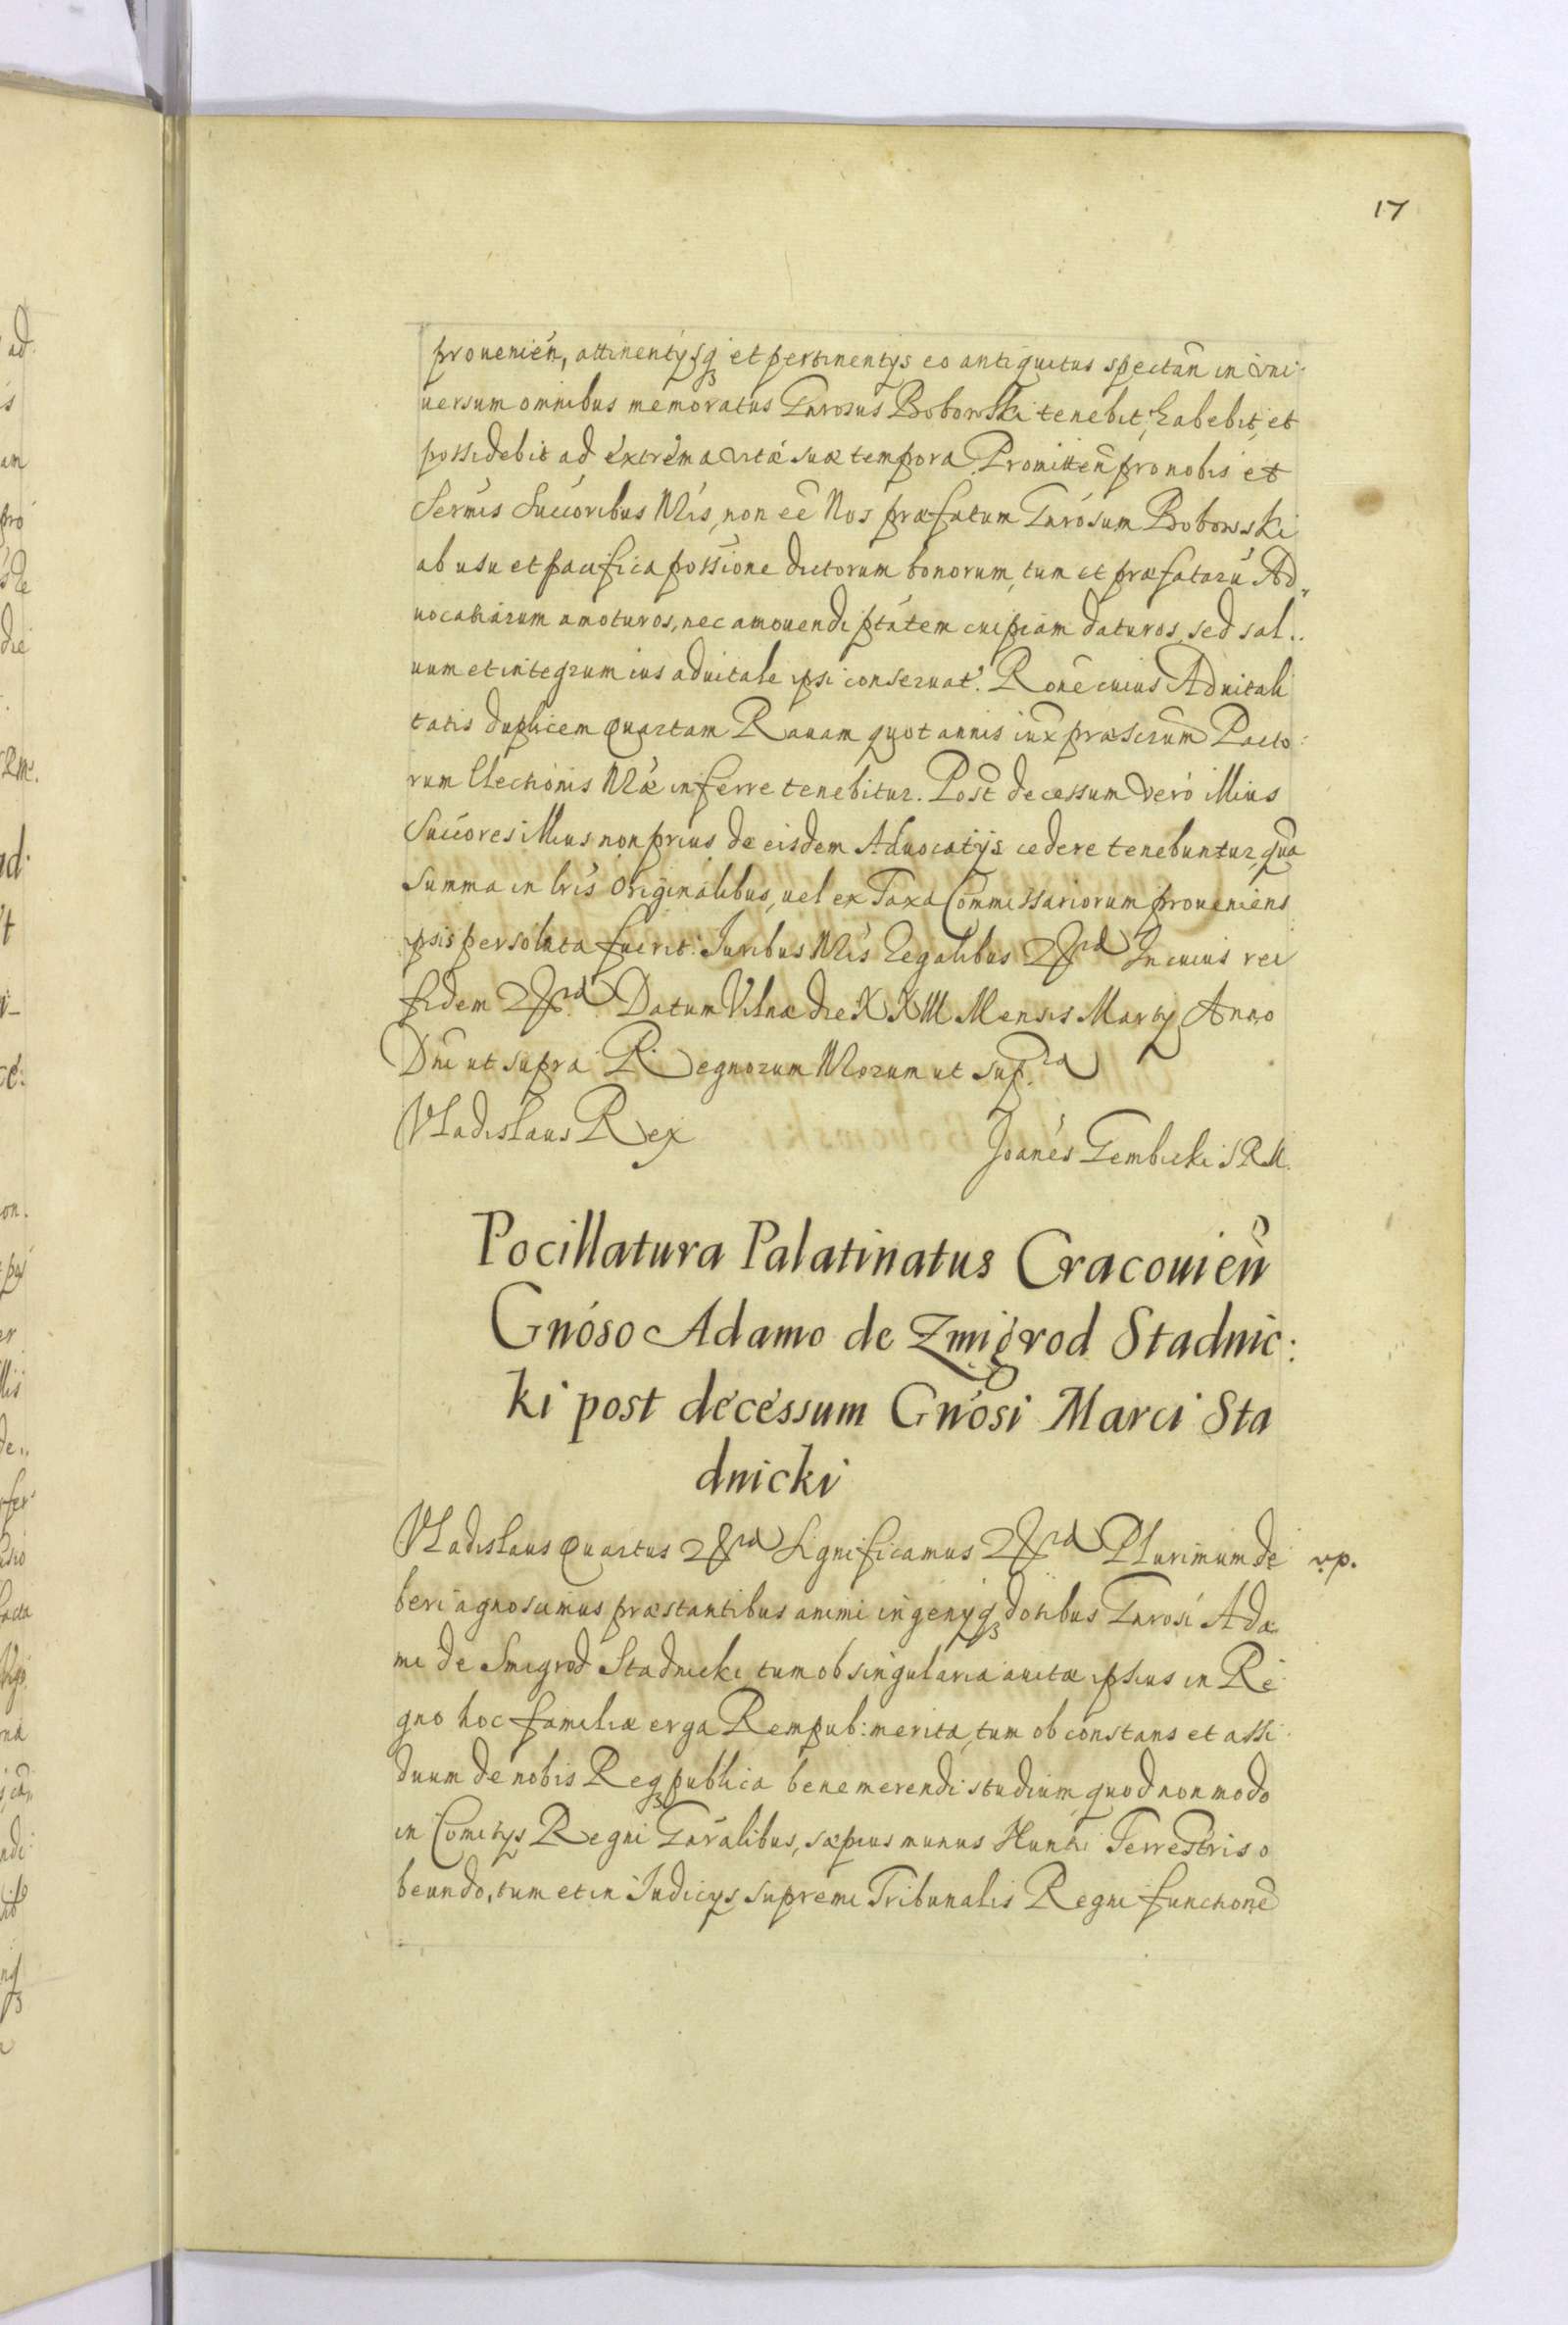 17
prouenien̄, attinentysq̃ et pertinentys eo antiquitus spectan̄ in vni
uersum omnibus memoratus Gnrosus Bobowski tenebit, habebit, et
possidebit ad extrema vitæ suæ tempora. Promitten̄ pro nobis et
Sermis Succoribus Nris, non eē Nos præfatum Gnrosum Bobowski
ab usu et pacifica possione dictorum bonorum, tum et præfatarū Ad
uocatiarum amoturos, nec amouendi ptatem cuipiam daturos, sed sal..
uum et integrum ius aduitale ipsi conseruat. Rone cuius Aduitali
tatis duplicem quartam Rauam quotannis iux præscrum Pacto:
rum Electionis Nræ inferre tenebitur. Post decessum vero illius
Succores illius non prius de eisdem Aduocatijs cedere tenebuntur, qua
summa in lris Originalibus, uel ex Taxa Commissariorum proueniens
ipsis persoluta fuerit. Iuribus Nris Regalibus &ra In cuius rei
fidem &ra Datum Vilnæ die XXIII Mensis Marty Anno
Dni ut supra Regnorum Nrorum ut supra
Vladislaus Rex
Joanes Gembicki S R M.
Pocillatura Palatinatus Cracouien̄
Gnóso Adamo de Zmigrod Stadnic:
ki post decessum Gnósi Marci Sta
dnicki
Vladislaus Quartus &ra Significamus &ra Plurimum de
vp.
beri agnoscimus præstantibus animi ingenyq̃ dotibus Gnrosi Ada
mi de Smigrod Stadnicki tum ob singularia auitæ ipsius in Re
gno hoc familiæ erga Rempub: merita, tum ob constans et assi
duum de nobis Reqpublica benemerendi studium, quod non modo
in Comitys Regni Gnralibus, sæpius munus Nuntii Terrestris o
beundo, tum et in Iudicys supremi Tribunalis Regni functionē